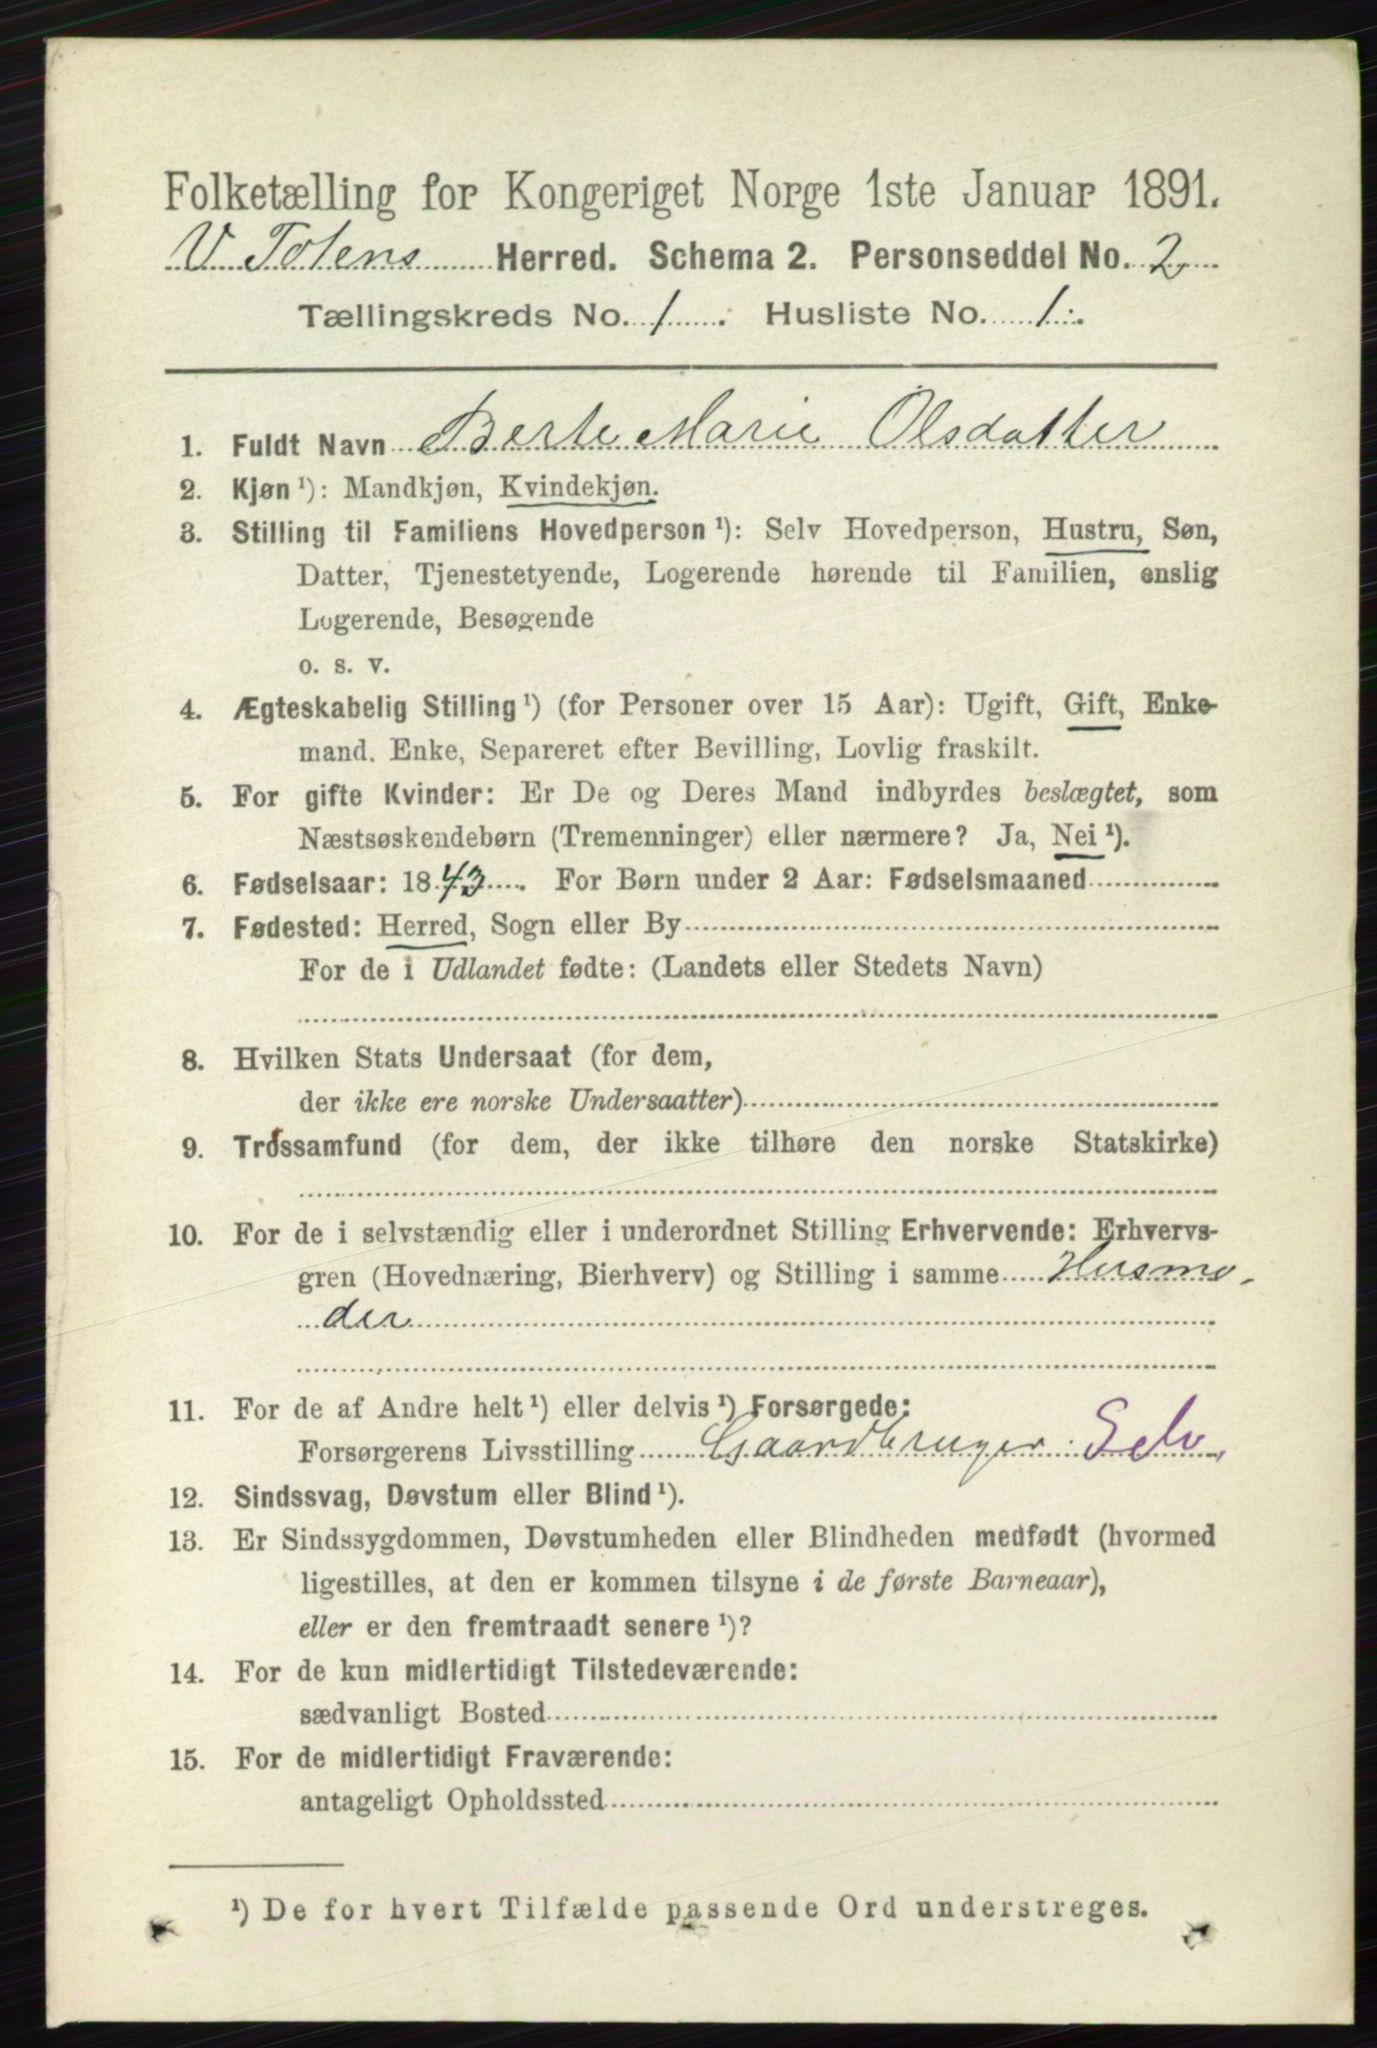 Folketælling for Kongeriget Norge 1ste Januar 1891.
V Totens Herred. Schema 2. Personseddel No. 2
Tællingskreds No. 1. Husliste No. 1.
1. Fuldt Navn Berte Marie Olsdatter
2. Kjøn ¹): Mandkjøn, Kvindekjøn.
3. Stilling til Familiens Hovedperson ¹): Selv Hovedperson, Hustru, Søn,
Datter, Tjenestetyende, Logerende hørende til Familien, enslig
Logerende, Besøgende
o. s. v.
4. Ægteskabelig Stilling ¹) (for Personer over 15 Aar): Ugift, Gift, Enke-
mand. Enke, Separeret efter Bevilling, Lovlig fraskilt.
5. For gifte Kvinder: Er De og Deres Mand indbyrdes beslægtet, som
Næstsøskendebørn (Tremenninger) eller nærmere? Ja, Nei ¹).
6. Fødselsaar: 1843. For Børn under 2 Aar: Fødselsmaaned
7. Fødested: Herred, Sogn eller By
For de i Udlandet fødte: (Landets eller Stedets Navn)
8. Hvilken Stats Undersaat (for dem,
der ikke ere norske Undersaatter)
9. Trossamfund (for dem, der ikke tilhøre den norske Statskirke)
10. For de i selvstændig eller i underordnet Stilling Erhvervende: Erhvervs-
gren (Hovednæring, Bierhverv) og Stilling i samme Husmo-
der
11. For de af Andre helt ¹) eller delvis ¹) Forsørgede:
Forsørgerens Livsstilling Gaardbruger Selv.
12. Sindssvag, Døvstum eller Blind ¹).
13. Er Sindssygdommen, Døvstumheden eller Blindheden medfødt (hvormed
ligestilles, at den er kommen tilsyne i de første Barneaar),
eller er den fremtraadt senere ¹)?
14. For de kun midlertidigt Tilstedeværende:
sædvanligt Bosted
15. For de midlertidigt Fraværende:
antageligt Opholdssted
¹) De for hvert Tilfælde passende Ord understreges.